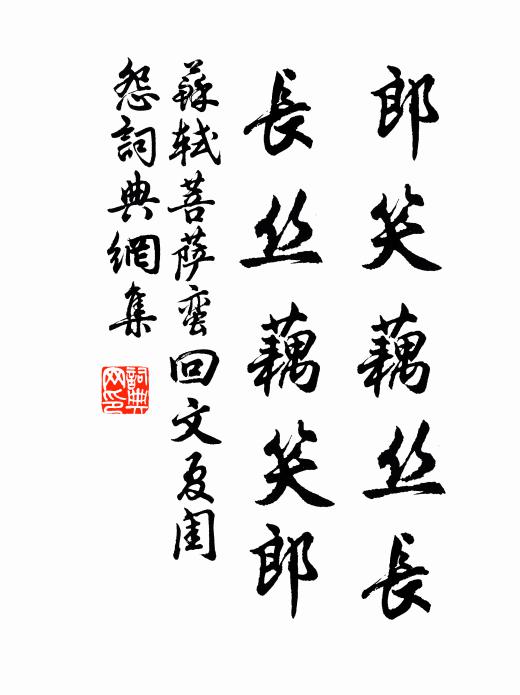 郎笑藕丝長
長丝藕笑郎
蘇軾菩萨蛮回文夏閨
怨詞典網集
詞典
网印